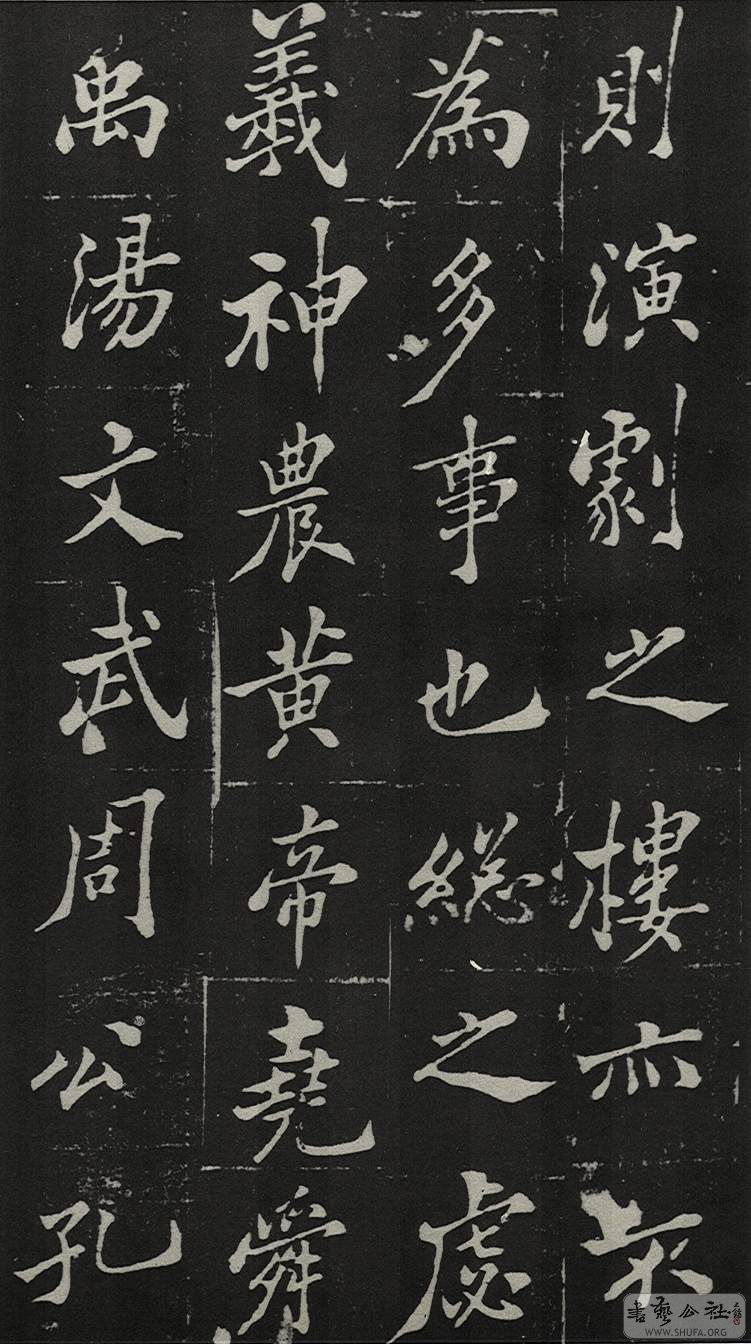 則演劇之樓亦不
為多事也総之虙
羲神農黄帝堯舜
禹湯文武周公孔
書藝公社
WWW.SHUFA.ORG